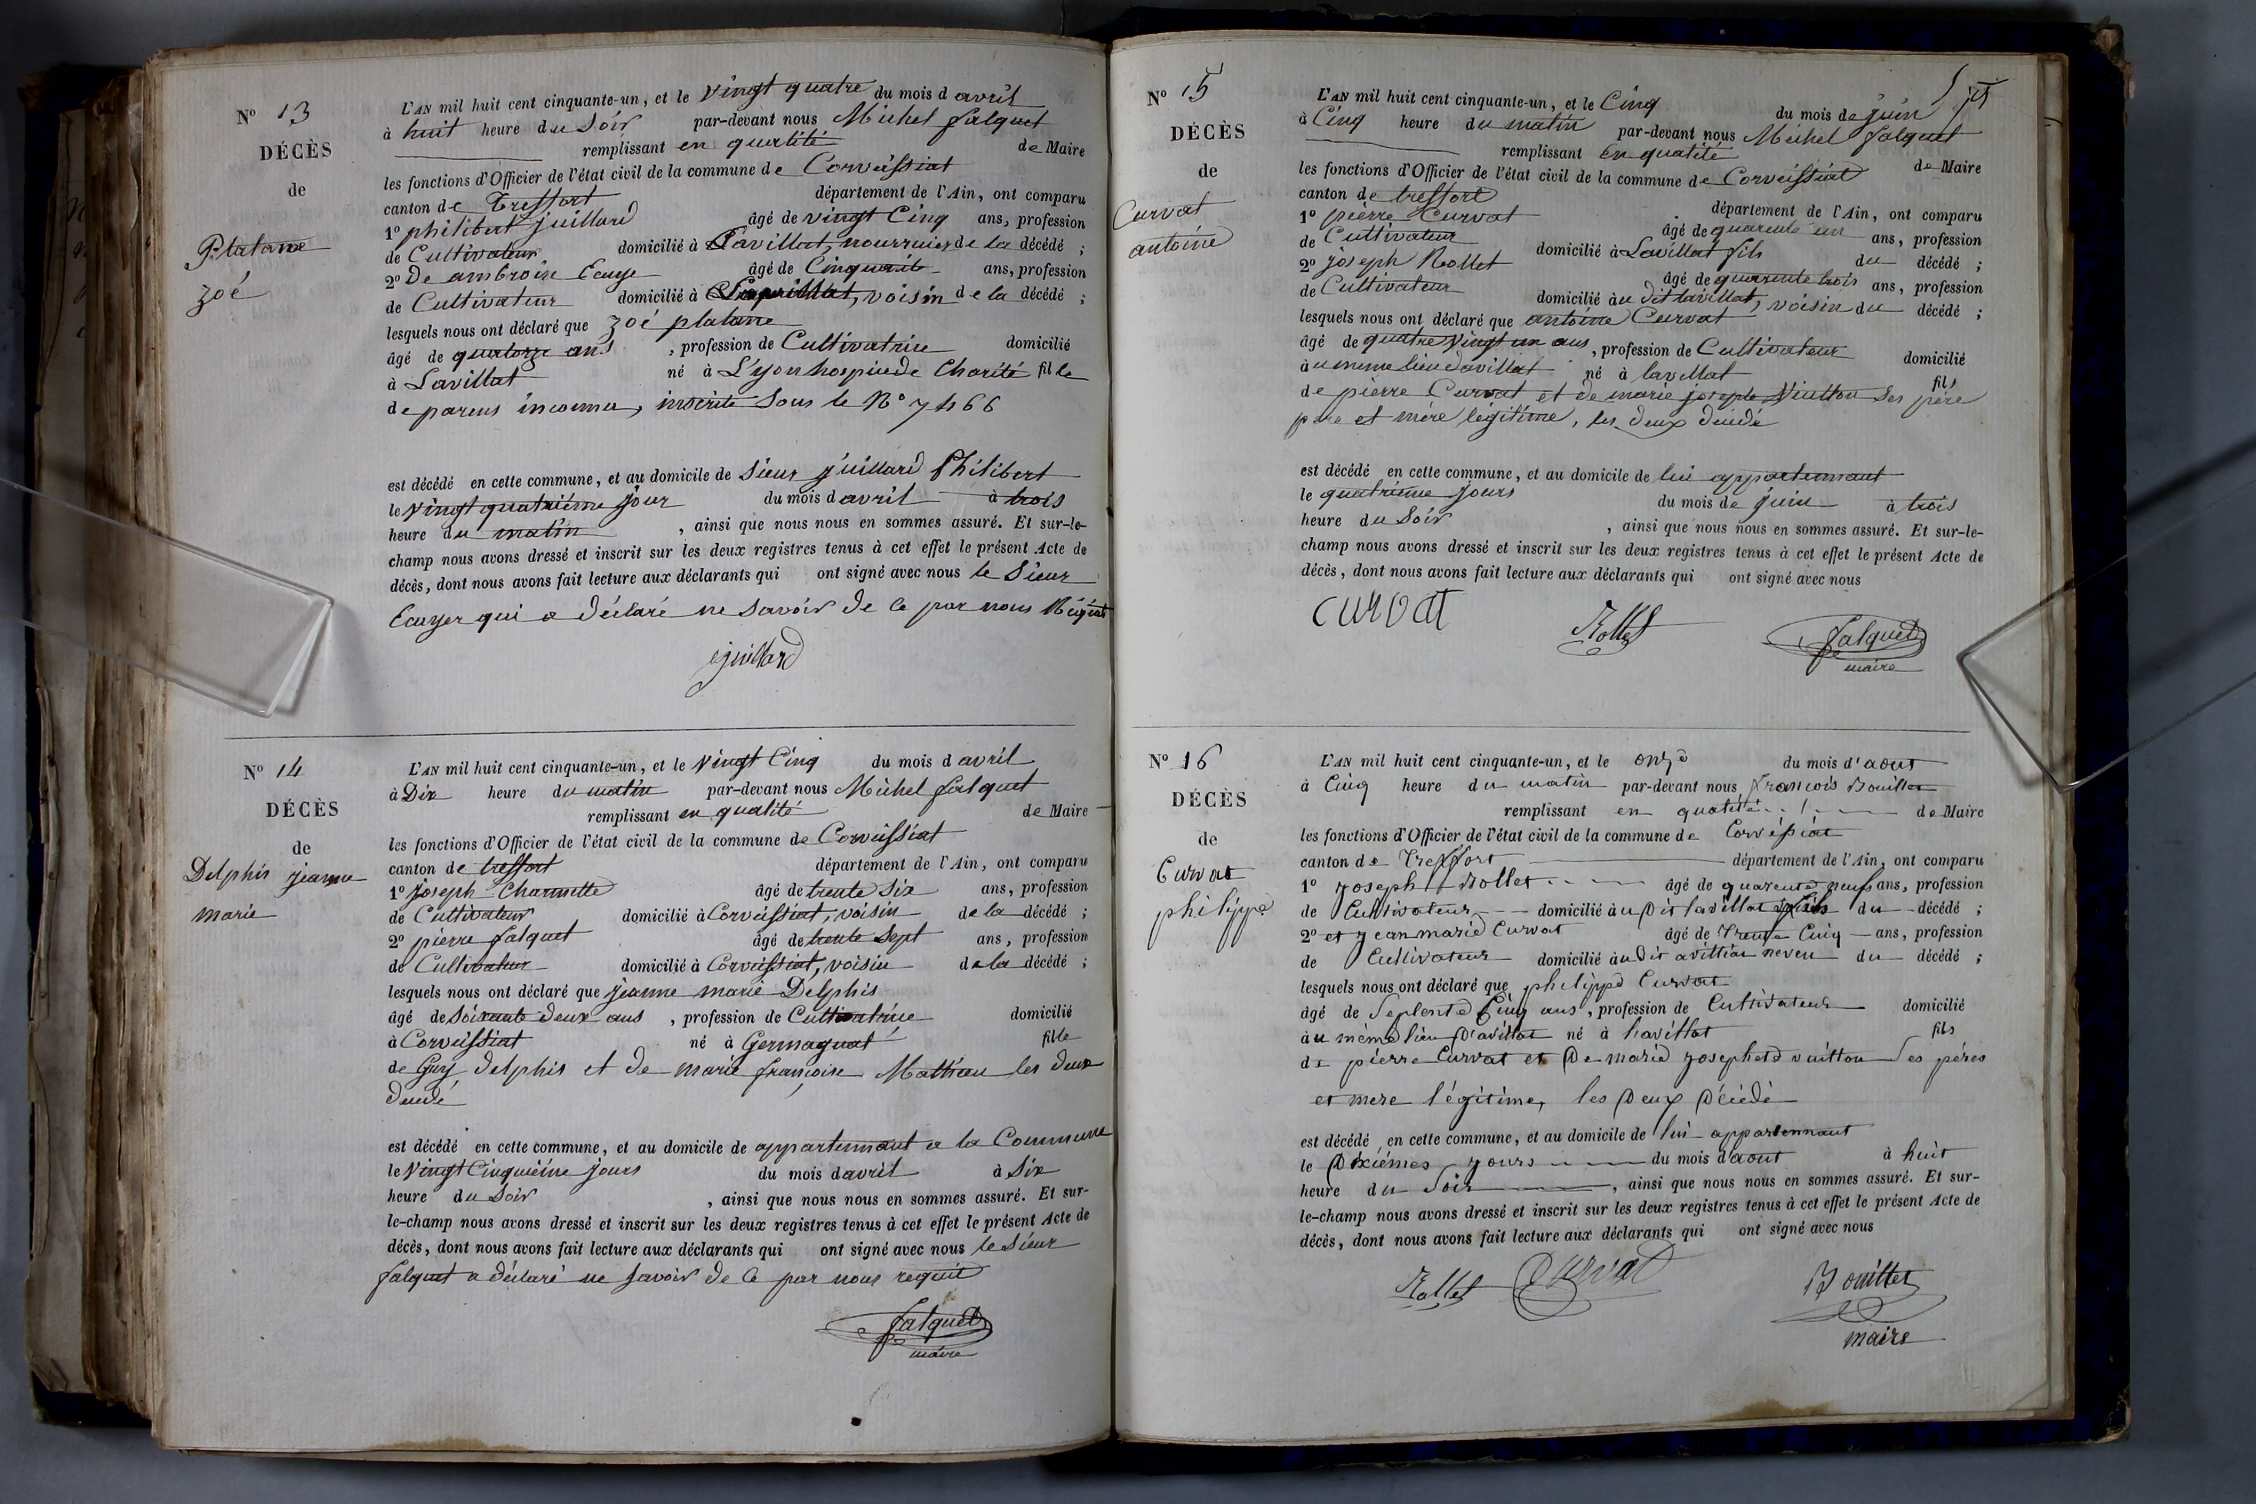 N° 13
DÉCÈS
de
Platane
zoé
L'AN mil huit cent cinquante-un, et le vingt quatre du mois d avril
à huit heure du Soir par-devant nous Michel falquet
remplissant en qualité de Maire
les fonctions d'Officier de l'état civil de la commune de Corveissiat
canton de Treffort département de l'Ain, ont comparu
1° philibert juillard âgé de vingt Cinq ans, profession
de Cultivateur domicilié à Lavillat, nourricier de la décédé ;
2° De ambroise Ecuye âgé de Cinquante ans, profession
de Cultivateur domicilié à voisin de la décédé ;
lesquels nous ont déclaré que zoé platane
âgé de quatorze ans , profession de Cultivatrice domicilié
à Lavillat né à Lyon hospice de Charité fille
de parens inconnu, inscrite Sous le N° 7466
est décédé en cette commune, et au domicile de Sieur juillard Philibert
le vingt quatrième jour du mois d avril à trois
heure du matin , ainsi que nous nous en sommes assuré. Et sur-le-
champ nous avons dressé et inscrit sur les deux registres tenus à cet effet le présent Acte de
décès, dont nous avons fait lecture aux déclarants qui ont signé avec nous le Sieur
Ecuyer qui a déclaré ne Savoir de ce par nous Réquis
juillard
N° 14
DÉCÈS
de
Delphis jeanne
marie
L'AN mil huit cent cinquante-un, et le vingt Cinq du mois d avril
à Dix heure du matin par-devant nous Michel falquet
remplissant en qualité de Maire
les fonctions d'Officier de l'état civil de la commune de Corveissiat
canton de treffort département de l'Ain, ont comparu
1° Joseph Charmette âgé de trente Six ans, profession
de Cultivateur domicilié à Corveissiat, voisin de la décédé ;
2° pierre falquet âgé de trente Sept ans, profession
de Cultivateur domicilié à Corveissiat, voisin de la décédé ;
lesquels nous ont déclaré que jeanne marie Delphis
âgé de Soixante Deux ans , profession de Cultivatrice domicilié
à Corveissiat né à Germagnat fille
de Guy Delphis et de marie françoise Mathieu les deux
Décédé
est décédé en cette commune, et au domicile de appartennant a la Commune
le vingt Cinquième jours du mois d avril à Six
heure du Soir , ainsi que nous nous en sommes assuré. Et sur-
le-champ nous avons dressé et inscrit sur les deux registres tenus à cet effet le présent Acte de
décès, dont nous avons fait lecture aux déclarants qui ont signé avec nous le Sieur
falquet a déclaré ne Savoir de ce par nous requit
falquet
maire
N° 15
DÉCÈS
de
Curvat
antoine
L'AN mil huit cent cinquante-un, et le Cinq du mois de juin
à Cinq heure du matin par-devant nous Michel falquet
remplissant en qualité de Maire
les fonctions d'Officier de l'état civil de la commune de Corveissiat
canton de treffort département de l'Ain, ont comparu
1° pierre Curvat âgé de quarente un ans, profession
de Cultivateur domicilié à Lavillat fils du décédé ;
2° joseph Rollet âgé de quarante trois ans, profession
de Cultivateur domicilié au dit lavillat, voisin du décédé ;
lesquels nous ont déclaré que antoine Curvat
âgé de quatre vingt un ans , profession de Cultivateur domicilié
à u meme lieu davillat né à lavillat fils
de pierre Curvat et de marie josephe Vuitton Ses père
pere et mère légitime, les Deux Décédé
est décédé en cette commune, et au domicile de lui appartennant
le quatrième jours du mois de juin à trois
heure du Soir , ainsi que nous nous en sommes assuré. Et sur-le-
champ nous avons dressé et inscrit sur les deux registres tenus à cet effet le présent Acte de
décès, dont nous avons fait lecture aux déclarants qui ont signé avec nous
curvat Rollet falquet
maire
N° 16
DÉCÈS
de
Curvat
philippe
L'AN mil huit cent cinquante-un, et le onze du mois d'aout
à Cinq heure du matin par-devant nous françois Bouillet
remplissant en qualité de Maire
les fonctions d'Officier de l'état civil de la commune de Corvésiat
canton de Treffort département de l'Ain, ont comparu
1° joseph Rollet âgé de quarente neuf ans, profession
de Cultivateur domicilié au Dit lavillat du décédé ;
2° et jean marie Curvat âgé de Trente Cinq ans, profession
de Cultivateur domicilié au Dit avillat neveu du décédé ;
lesquels nous ont déclaré que philippe Curvat
âgé de Septente Cinq ans , profession de Cultivateur domicilié
à u même lieu D'avillat né à Lavillat fils
de pierre Curvat et De marie josephe vuitton Ses péres
et mere légitime, les Deux Décédé
est décédé en cette commune, et au domicile de lui appartennant
le Dixiémes jours du mois d'aout à huit
heure du Soir , ainsi que nous nous en sommes assuré. Et sur-
le-champ nous avons dressé et inscrit sur les deux registres tenus à cet effet le présent Acte de
décès, dont nous avons fait lecture aux déclarants qui ont signé avec nous
Rollet Curvat Bouillet
maire